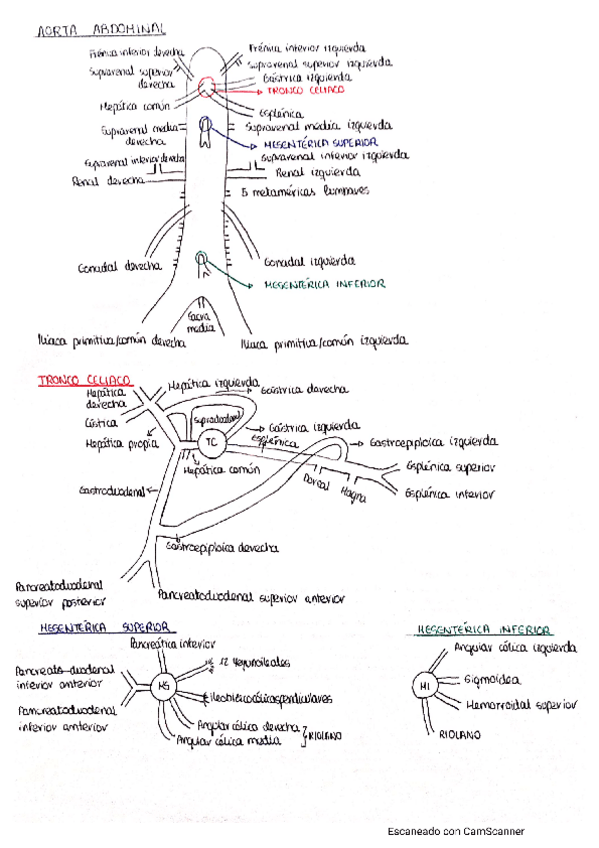 AORTA ABDOMINAL
Frénica inferior derecha
Frénica inferior izquierda
Suprarrenal superior izquierda
Suprarrenal superior
derecha
Gástrica izquierda
TRONCO CELIACO
Hepática común
Esplénica
Suprarrenal media
derecha
Suprarrenal media izquierda
MESENTÉRICA SUPERIOR
Suprarrenal inferior derecha
Suprarrenal inferior izquierda
Renal derecha
Renal izquierda
5 metaméricas lumbares
Gonadal derecha
Gonadal izquierda
MESENTÉRICA INFERIOR
Sacra
media
Iliaca primitiva/común derecha
Iliaca primitiva/común izquierda
TRONCO CELIACO
Hepática izquierda
Gástrica derecha
Hepática
derecha
Cística
Supraduodenal
Gástrica izquierda
Hepática propia
TC
Esplénica
Gastroepiploica izquierda
Hepática común
Esplénica superior
Gastroduodenal
Dorsal
Magna
Esplénica inferior
Gastroepiploica derecha
Pancreatoduodenal
superior posterior
Pancreatoduodenal superior anterior
MESENTÉRICA SUPERIOR
Pancreática inferior
12 Yeyunoileales
Pancreato-duodenal
inferior anterior
MS
Pancreatoduodenal
inferior anterior
Angular cólica derecha
Angular cólica media
RIOLANO
MESENTÉRICA INFERIOR
Angular cólica izquierda
MI
Sigmoidea
Hemorroidal superior
RIOLANO
Escaneado con CamScanner